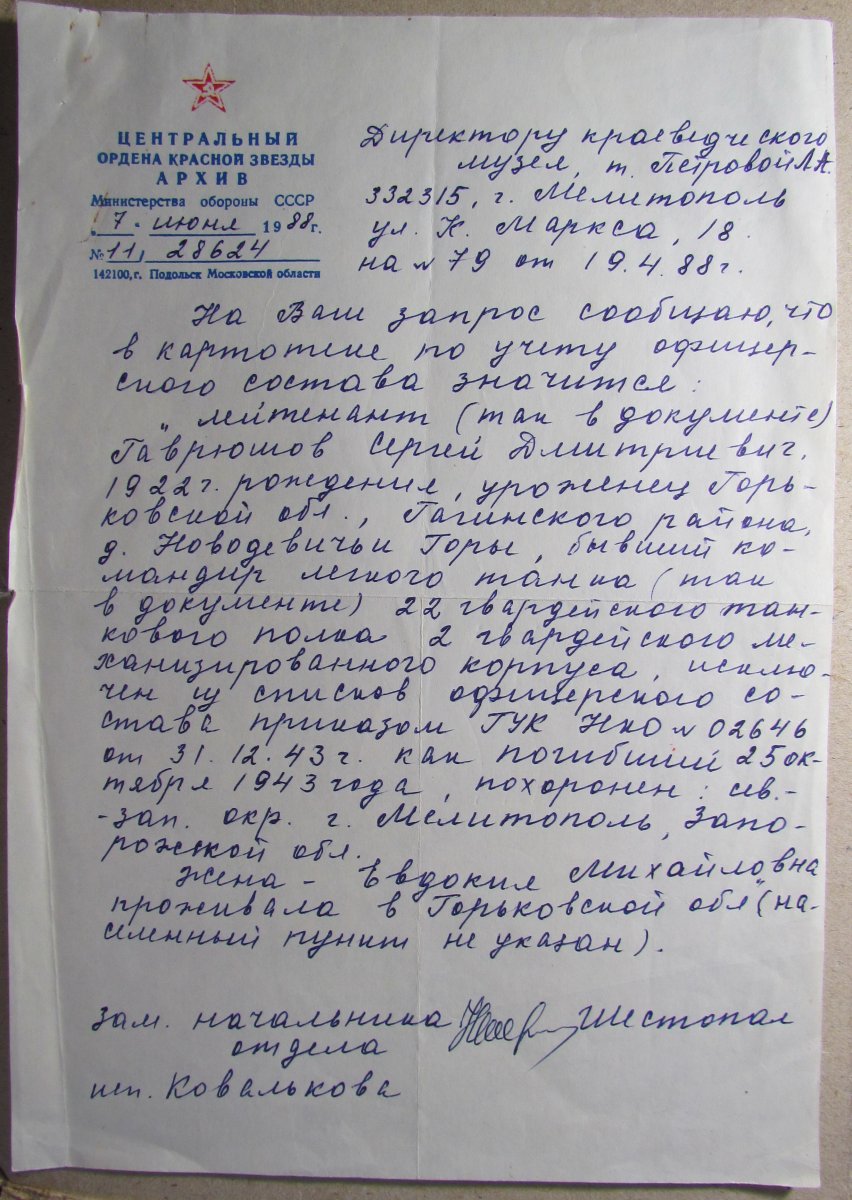 ЦЕНТРАЛЬНЫЙ
ОРДЕНА КРАСНОЙ ЗВЕЗДЫ
АРХИВ
Министерства обороны СССР
„7" июня 1988г.
№ 11, 28624
142100, г. Подольск Московской области
Директору краеведческого
музея, т. Петровой Л.А.
332315, г. Мелитополь
ул. К. Маркса, 18.
на № 79 от 19.4.88г.
На Ваш запрос сообщаю, что
в картотеке по учету офицер-
ского состава значится:
„лейтенант (так в документе)
Гаврюшов Сергей Дмитриевич,
1922г. рождения, уроженец Горь-
ковской обл., Гагинского района,
д. Новодевичьи Горы, бывший ко-
мандир легкого танка (так
в документе) 22 гвардейского тан-
кового полка 2 гвардейского ме-
ханизированного корпуса, исклю-
чен из списков офицерского со-
става приказом ГУК НКО № 02646
от 31.12.43г. как погибший 25 ок-
тября 1943 года, похоронен: сев.-
-зап. окр. г. Мелитополь, Запо-
рожской обл.
Жена - Евдокия Михайловна
проживала в Горьковской обл" (на-
селенный пункт не указан).
зам. начальника Шестопал
отдела
исп. Ковалькова